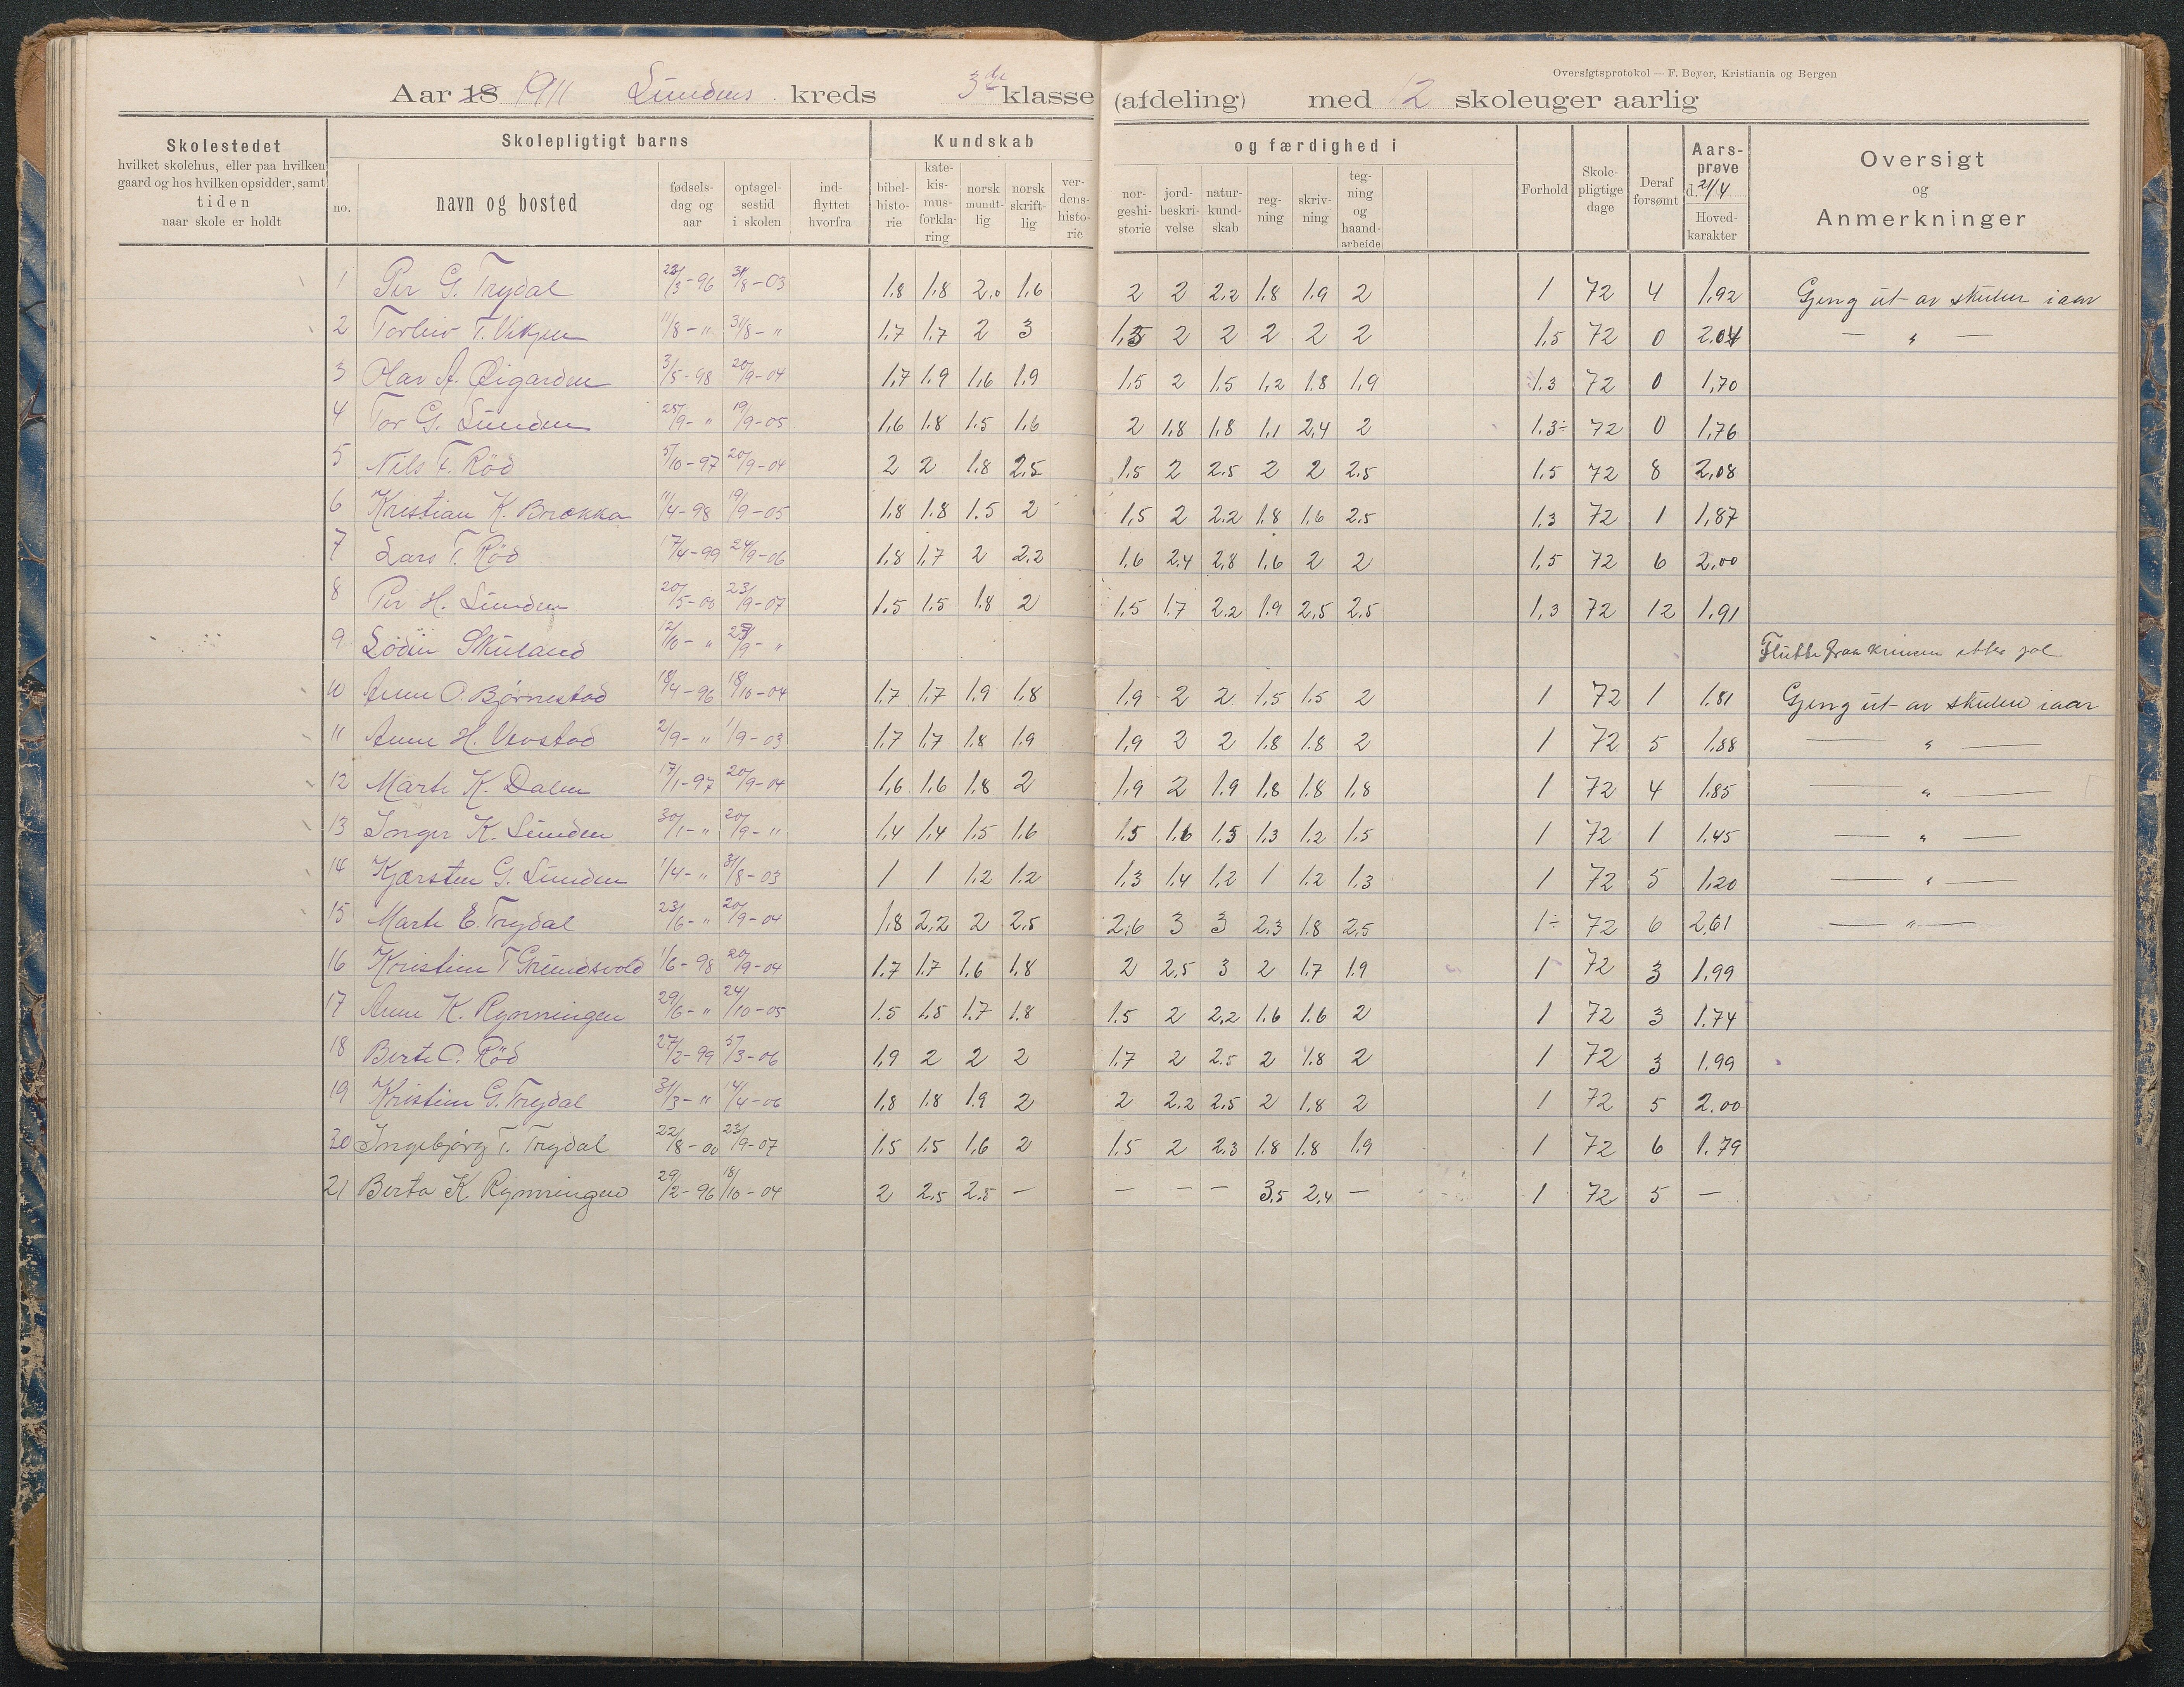 Oversigtsprotokol — F. Beyer, Kristiania og Bergen
Aar 18 1911 Lundens kreds 3die klasse (afdeling) med 12 skoleuger aarlig
Skolestedet hvilket skolehus, eller paa hvilken gaard og hos hvilken opsidder, samt tiden naar skole er holdt
Skolepligtigt barns
no. navn og bosted fødsels-dag og aar optagel-sestid i skolen ind-flyttet hvorfra
Kundskab og færdighed i
bibel-histo-rie kate-kis-mus-forkla-ring norsk mundt-lig norsk skrift-lig ver-dens-histo-rie nor-geshi-storie jord-beskri-velse natur-kund-skab reg-ning skriv-ning teg-ning og haand-arbeide
Forhold Skole-pligtige dage Deraf forsømt Aars-prøve d. 21/4 Hoved-karakter
Oversigt og Anmerkninger
1 Per G. Trydal 22/3-96 31/8-03 1.8 1.8 2.0 1.6 2 2 2.2 1.8 1.9 2 1 72 4 1,92 Gjeng ut av skulen i aar
2 Torleiv T. Vikjen 11/8-" 31/8-" 1.7 1.7 2 3 1,5 2 2 2 2 2 1.5 72 0 2.04 — " —
3 Olav A. Øigarden 3/5-98 20/9-04 1.7 1.9 1.6 1.9 1.5 2 1.5 1.2 1.8 1.9 1.3 72 0 1,70
4 Tor G. Lunden 25/9-" 19/9-05 1.6 1.8 1.5 1.6 2 1.8 1.8 1.1 2.4 2 1.3÷ 72 0 1,76
5 Nils F. Röd 5/10-97 20/9-04 2 2 1.8 2.5 1.5 2 2.5 2 2 2.5 1.5 72 8 2,08
6 Kristian K. Brækka 11/4-98 19/9-05 1.8 1.8 1.5 2 1,5 2 2.2 1.8 1.6 2.5 1.3 72 1 1,87
7 Lars T. Röd 17/4-99 24/9-06 1.8 1,7 2 2.2 1.6 2.4 2,8 1.6 2 2 1,5 72 6 2.00
8 Per H. Lunden 20/5-00 23/9-07 1.5 1.5 1.8 2 1.5 1.7 2.2 1.9 2,5 2.5 1,3 72 12 1,91
9 Lodin Skuland 12/10-" 23/9-" Flutte fraa krinsen etter jol
10 Anne O. Björnestad 18/4-96 18/10-04 1.7 1.7 1.9 1.8 1.9 2 2 1.5 1.5 2 1 72 1 1.81 Gjeng ut av skulen i aar
11 Anne H. Vevstad 2/9-" 1/9-03 1.7 1.7 1.8 1.9 1,9 2 2 1.8 1.8 2 1 72 5 1.88 — " —
12 Marte K. Dalen 17/1-97 20/9-04 1,6 1.6 1.8 2 1.9 2 1.9 1.8 1.8 1.8 1 72 4 1.85 — " —
13 Inger K. Lunden 30/1-" 20/9-" 1.4 1.4 1.5 1.6 1.5 1.6 1.5 1.3 1.2 1.5 1 72 1 1.45 — " —
14 Kjærsten G. Lunden 1/4-" 31/8-03 1 1 1.2 1.2 1.3 1.4 1.2 1 1.2 1.3 1 72 5 1,20 — " —
15 Marte E. Trydal 23/6-" 20/9-04 1.8 2.2 2 2.5 2.6 3 3 2.3 1.8 2.5 1÷ 72 6 2,61 — " —
16 Kristine T Grundsvold 1/6-98 20/9-04 1.7 1.7 1.6 1.8 2 2.5 3 2 1.7 1.9 1 72 3 1.99
17 Anne K. Rynningen 29/6-" 24/10-05 1.5 1.5 1.7 1.8 1.5 2 2.2 1.6 1.6 2 1 72 3 1.74
18 Berte O. Röd 27/2-99 5/3-06 1.9 2 2 2 1.7 2 2.5 2 1.8 2 1 72 3 1.99
19 Kristine G. Trydal 31/3-" 14/4-06 1.8 1.8 1.9 2 2 2.2 2.5 2 1.8 2 1 72 5 2.00
20 Ingebjörg T. Trydal 22/8-00 23/9-07 1.5 1.5 1.6 2 1.5 2 2.3 1.8 1.8 1.9 1 72 6 1.79
21 Berta K. Rynningen 29/2-96 18/10-04 2 2.5 2.5 — — — — 3.5 2.4 — 1 72 5 —